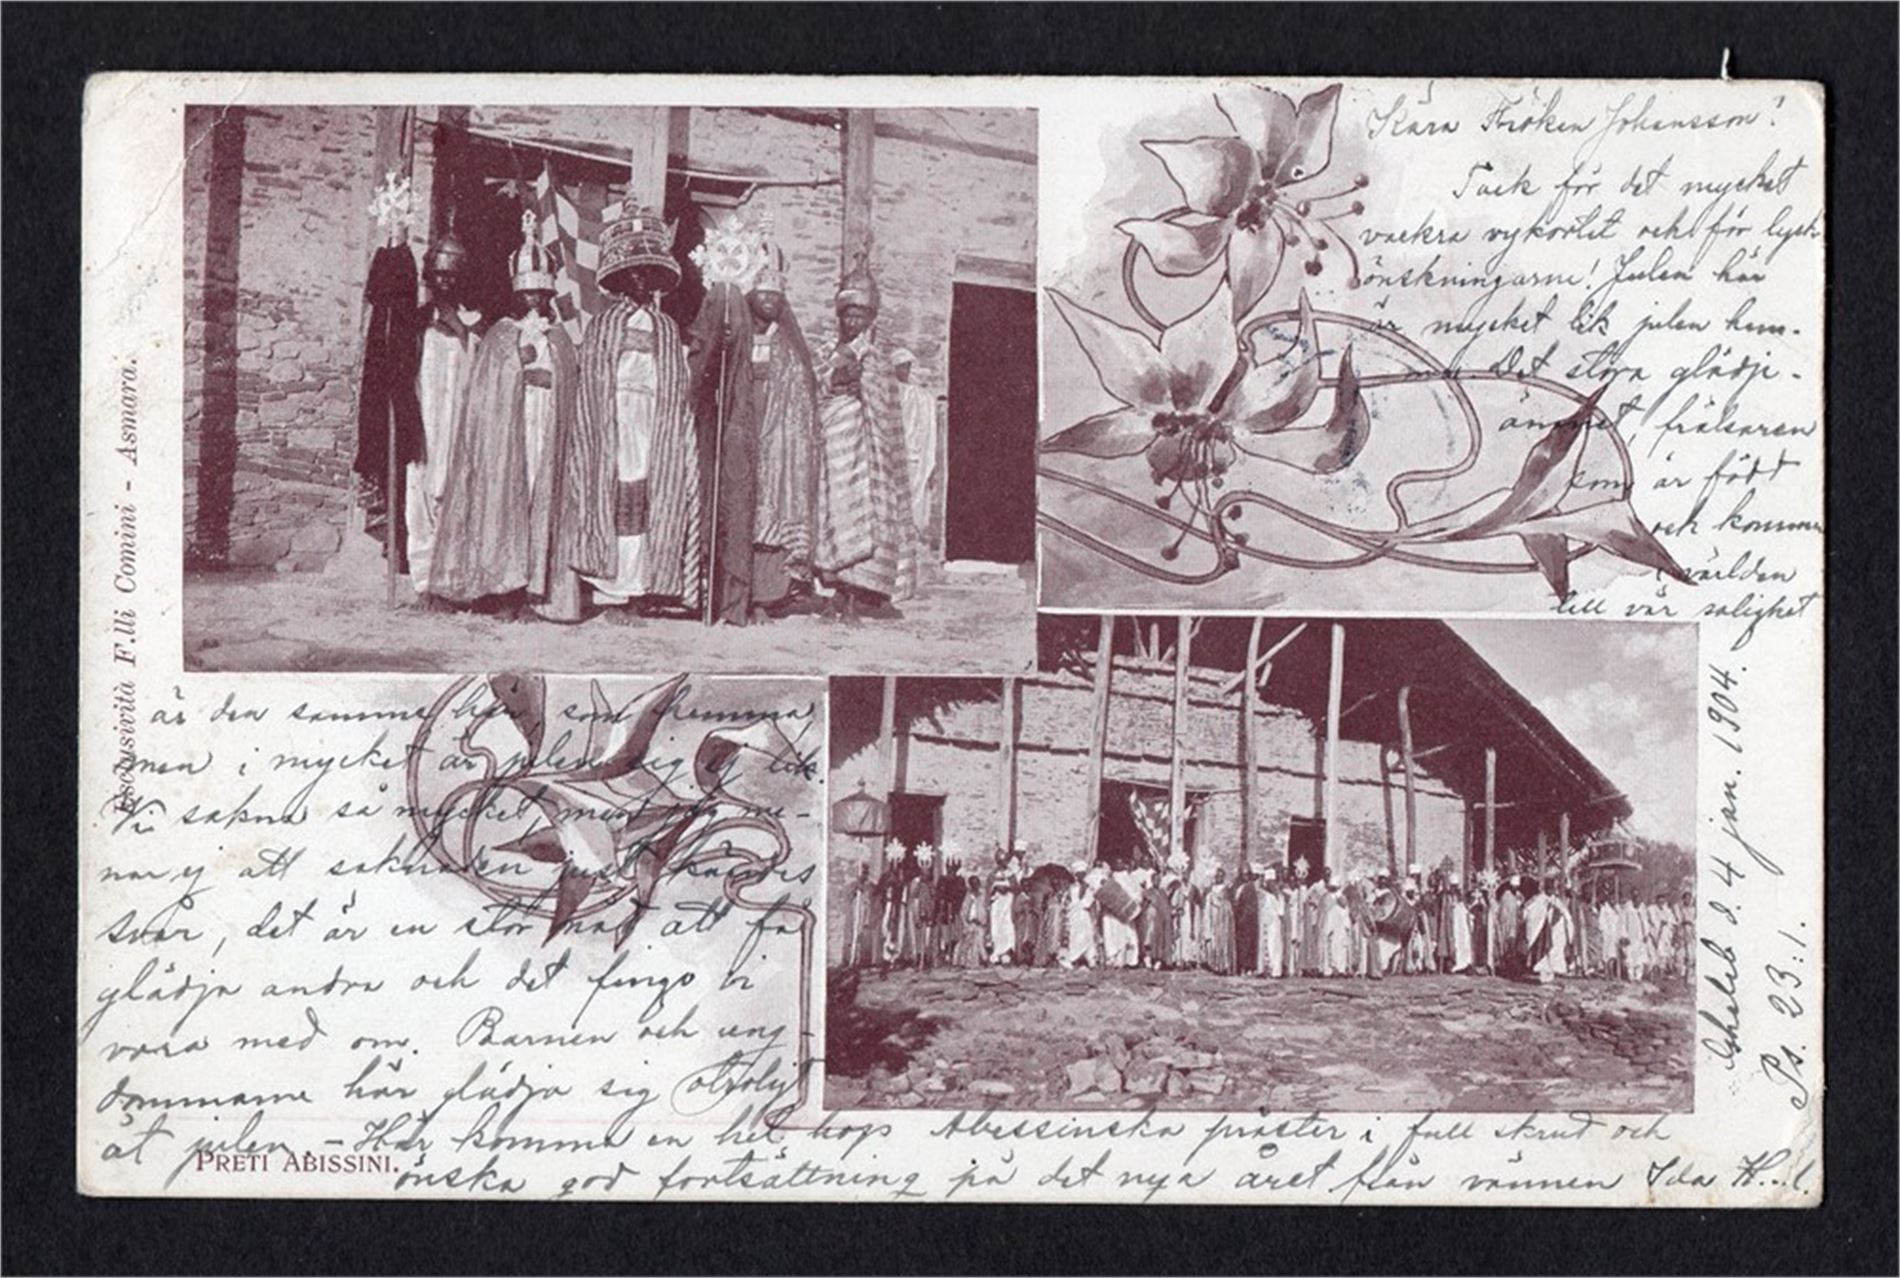 Kära Fröken Johansson!
Tack för det mycket
vackra vykortet och för lyck-
önskningarne! Julen här
är mycket lik julen hem-
ma. Det stora glädje-
ämnet, frälsaren
som är född
och kommen
i världen
till vår salighet
är den samma här, som hemma,
men i mycket är julen sig ej lik.
Vi sakna så mycket, men jag me-
nar ej att saknaden just kändes
svår, det är en stor nåd att få
glädja andra och det fingo vi
vara med om. Barnen och ung-
domarne här glädja sig otroligt
åt julen. - Här komma en hel hop Abessinska präster i full skrud och
önska god fortsättning på det nya året från vännen Ida H...l.
d. 4 jan. 1904.
Ps. 23:1.
Esclusività F.lli Comini - Asmara.
PRETI ABISSINI.